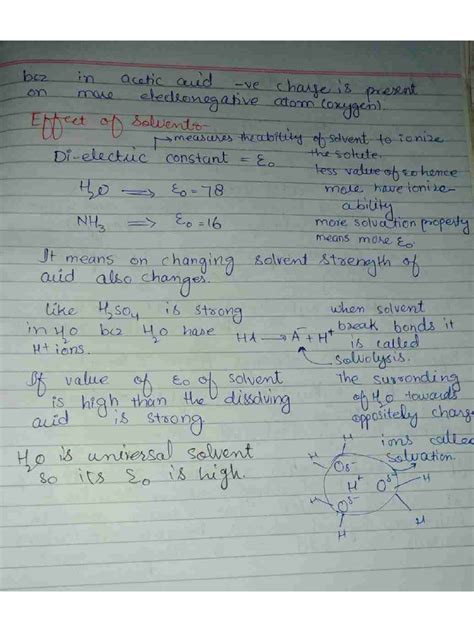 bcz in acetic acid -ve charge is present
on more electronegative atom (oxygen).
Effect of Solvents
→ measures the ability of solvent to ionize
the solute.
Di-electric constant = ε₀
less value of ε₀ hence
H₂O ⟹ ε₀ = 78
more have ionize
ability
NH₃ ⟹ ε₀ = 16
more solvation property
means more ε₀.
It means on changing solvent strength of
acid also changes.
like H₂SO₄ is strong
in H₂O bcz H₂O have
H+ ions.
HA → A⁻ + H⁺
when solvent
break bonds it
is called
solvolysis.
If value of ε₀ of solvent
is high than the dissolving
acid is strong.
The surronding
of H₂O towards
oppositely charge
ions called
solvation.
H₂O is universal solvent
so its ε₀ is high.
H
H
Oδ-
H⁺
Oδ-
H
H
Oδ-
H
H